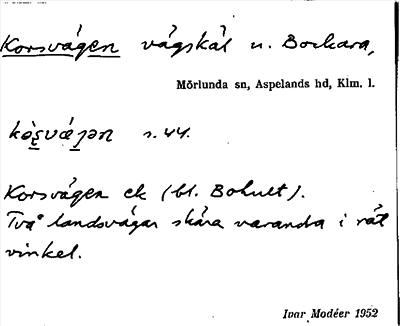 Korsvägen vägskäl n. Bockara,
Mörlunda sn, Aspelands hd, Klm. l.
s. 44.
Korsvägen ek (bl. Bohult).
Två landsvägar skära varandra i rät
vinkel.
Ivar Modéer 1952